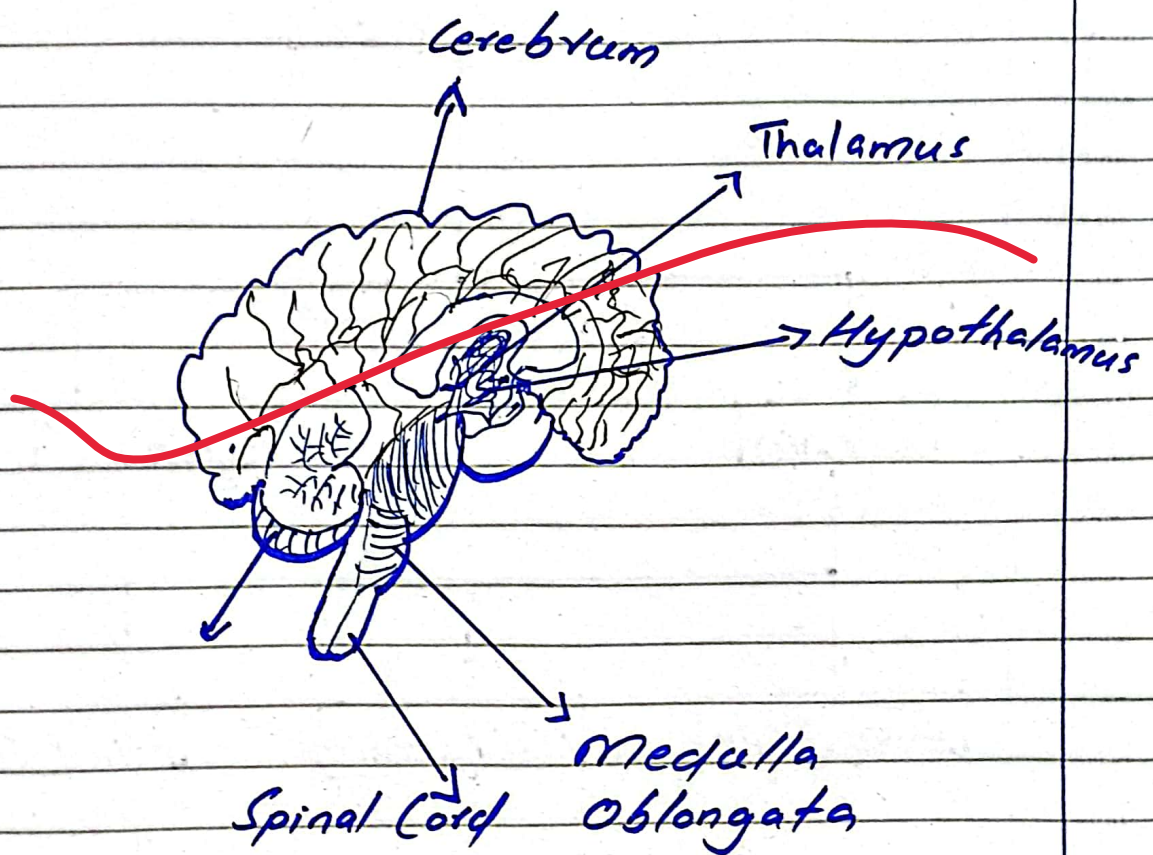 Cerebrum
Thalamus
Hypothalamus
Medulla
Oblongata
Spinal Cord